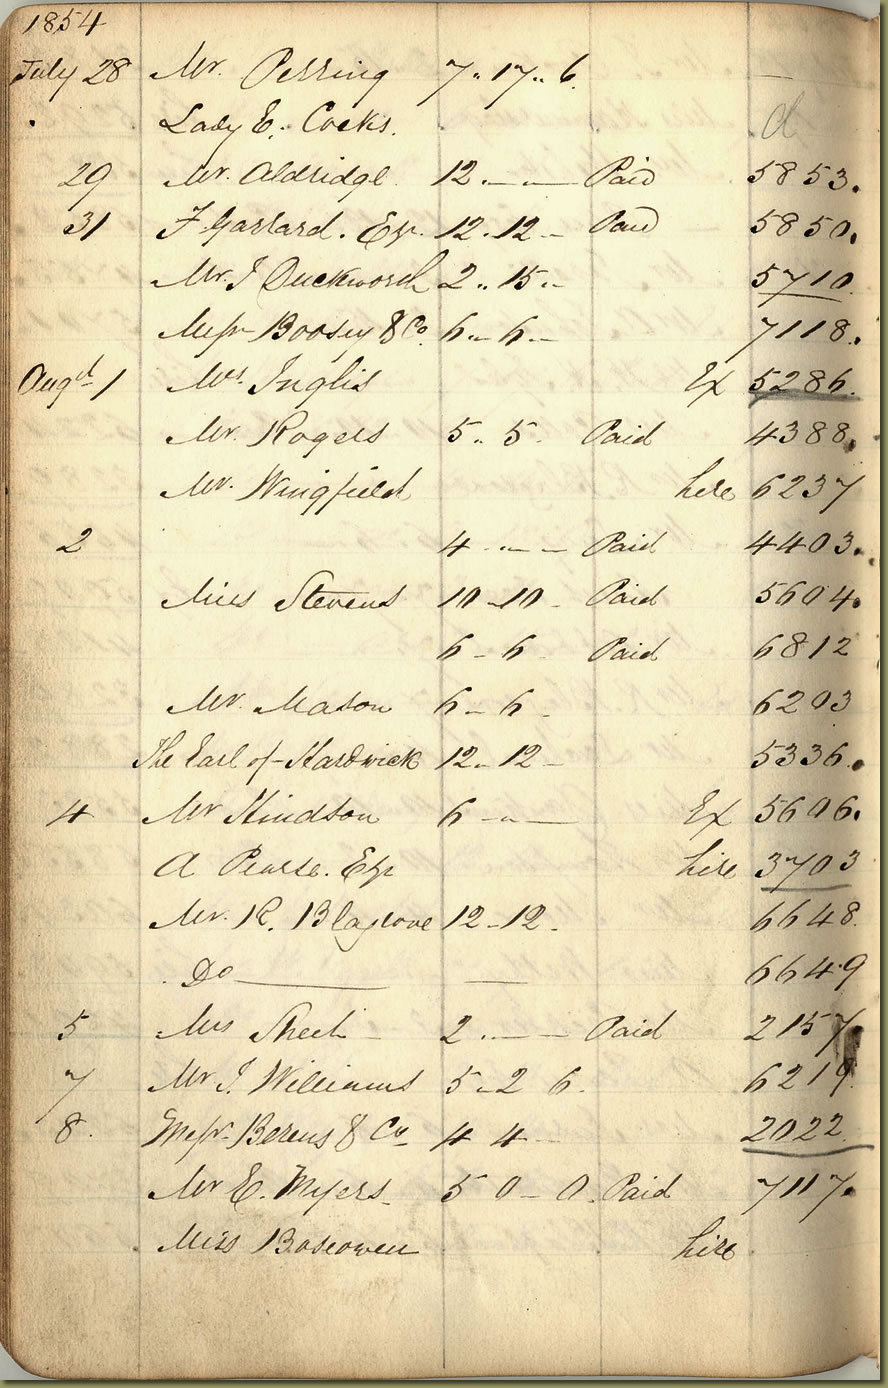 1854
July 28 Mr. Perring 7 .. 17 .. 6.
Lady E. Cocks. d
29 Mr. Aldridge 12 . — — Paid 5853.
31 F. Garrard. Esq. 12 . 12 — Paid 5850.
Mr. J Duckworth 2 .. 15 .. 5710
Messrs Boosey & Co. 6 .. 6 .. 7118.
Augst 1 Mrs. Inglis Ex 5286.
Mr. Rogers 5 .. 5. Paid 4388.
Mr. Wingfield hire 6237
2 4 . .. — Paid 4403.
Miss Stevens 10 - 10 - Paid 5604.
6 - 6 Paid 6812
Mr. Mason 6 - 6 - 6203
The Earl of Hardwick 12 - 12 - 5336.
4 Mr Hindson 6 - .. — Ex 5606.
A Pearse. Esq hire 3703
Mr. R. Blagrove 12 - 12 - 6648.
Do — 6649
5 Mrs 2 . — — Paid 2157.
7 Mr J. Williams 5 .. 2 6. 6219
8. Messrs. Berens & Co 4 4 — 2022
Mr E. Myers 5 0 - 0. Paid 7117.
Miss Boscowen hire